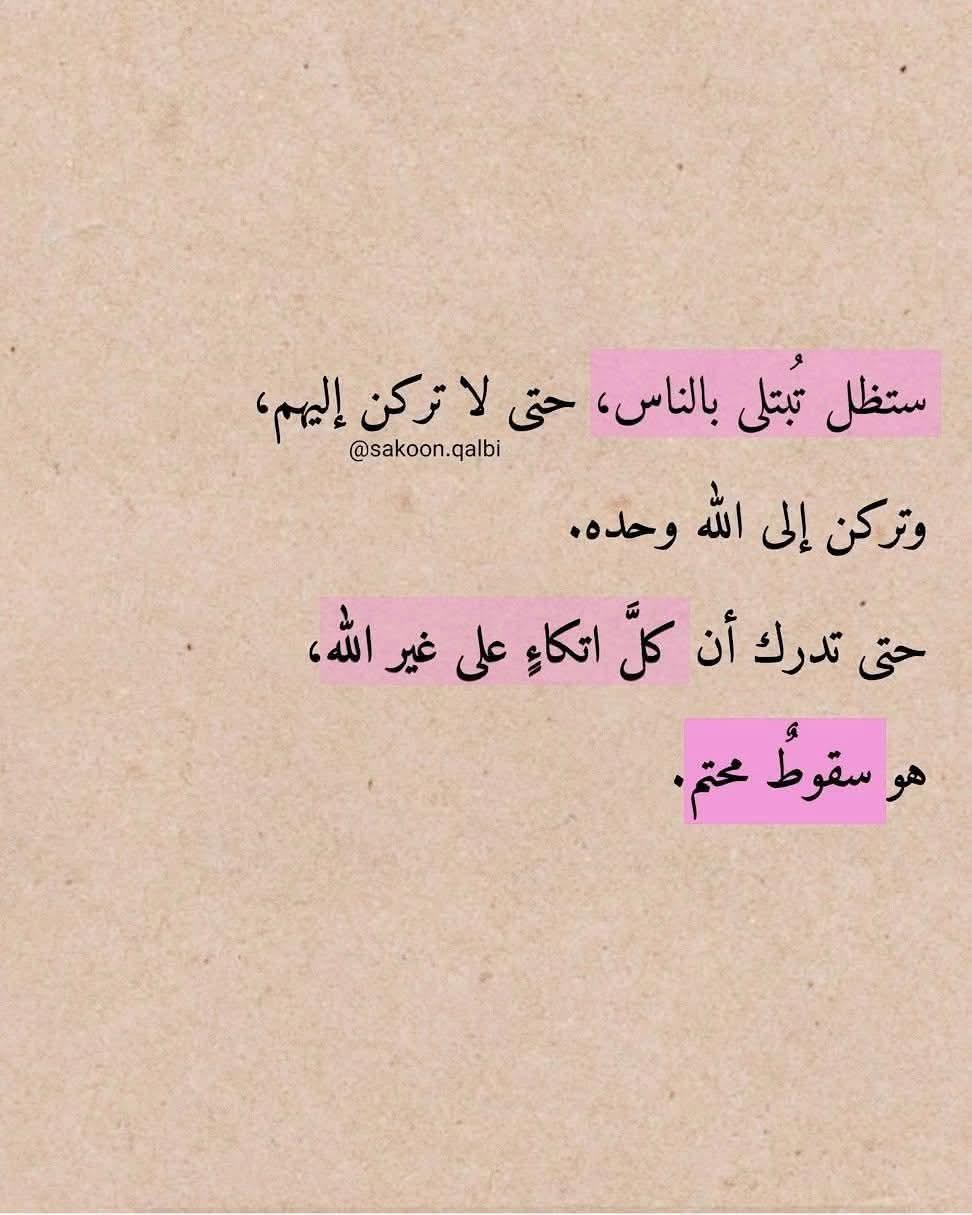 ستظل تُبتلى بالناس، حتى لا تركن إليهم،
@sakoon.qalbi
وتركن إلى الله وحده.
حتى تدرك أن كلَّ اتكاءٍ على غير الله،
هو سقوطٌ محتم.